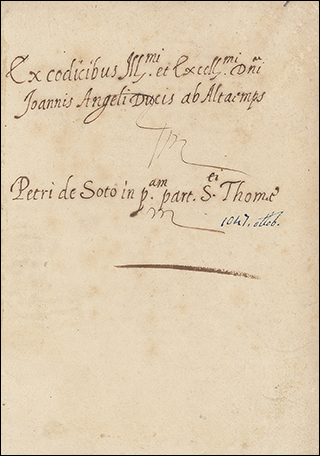 Ex codicibus Ill.mi et Excell.mi Dni
Joannis Angeli Ducis ab Altaemps
Petri de Soto in p.am part. S.ti Thomæ
1047. ottob.